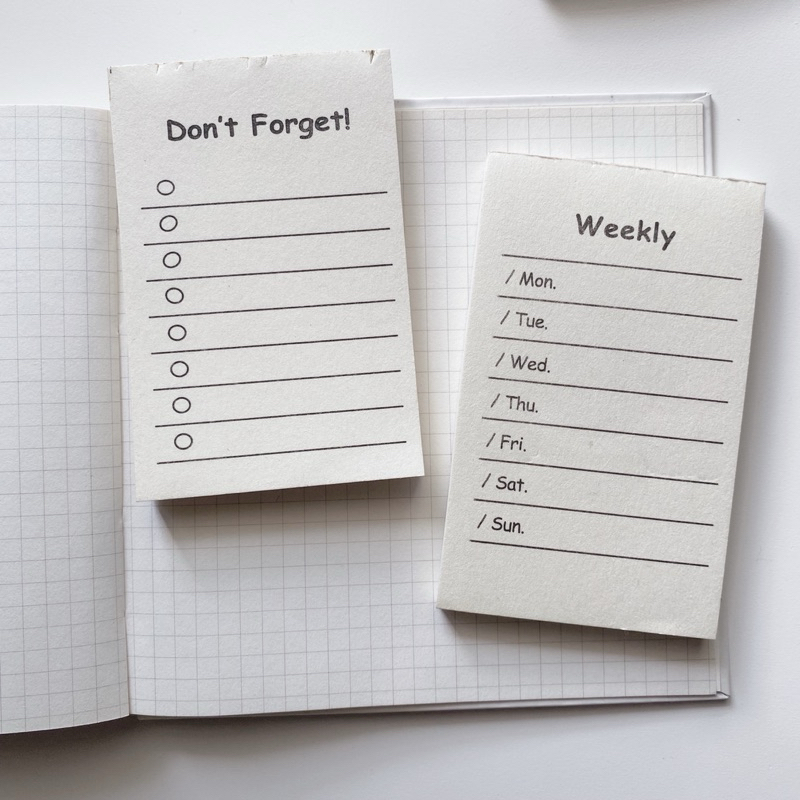 Don't Forget!
Weekly
/ Mon.
/ Tue.
/ Wed.
/ Thu.
/ Fri.
/ Sat.
/ Sun.